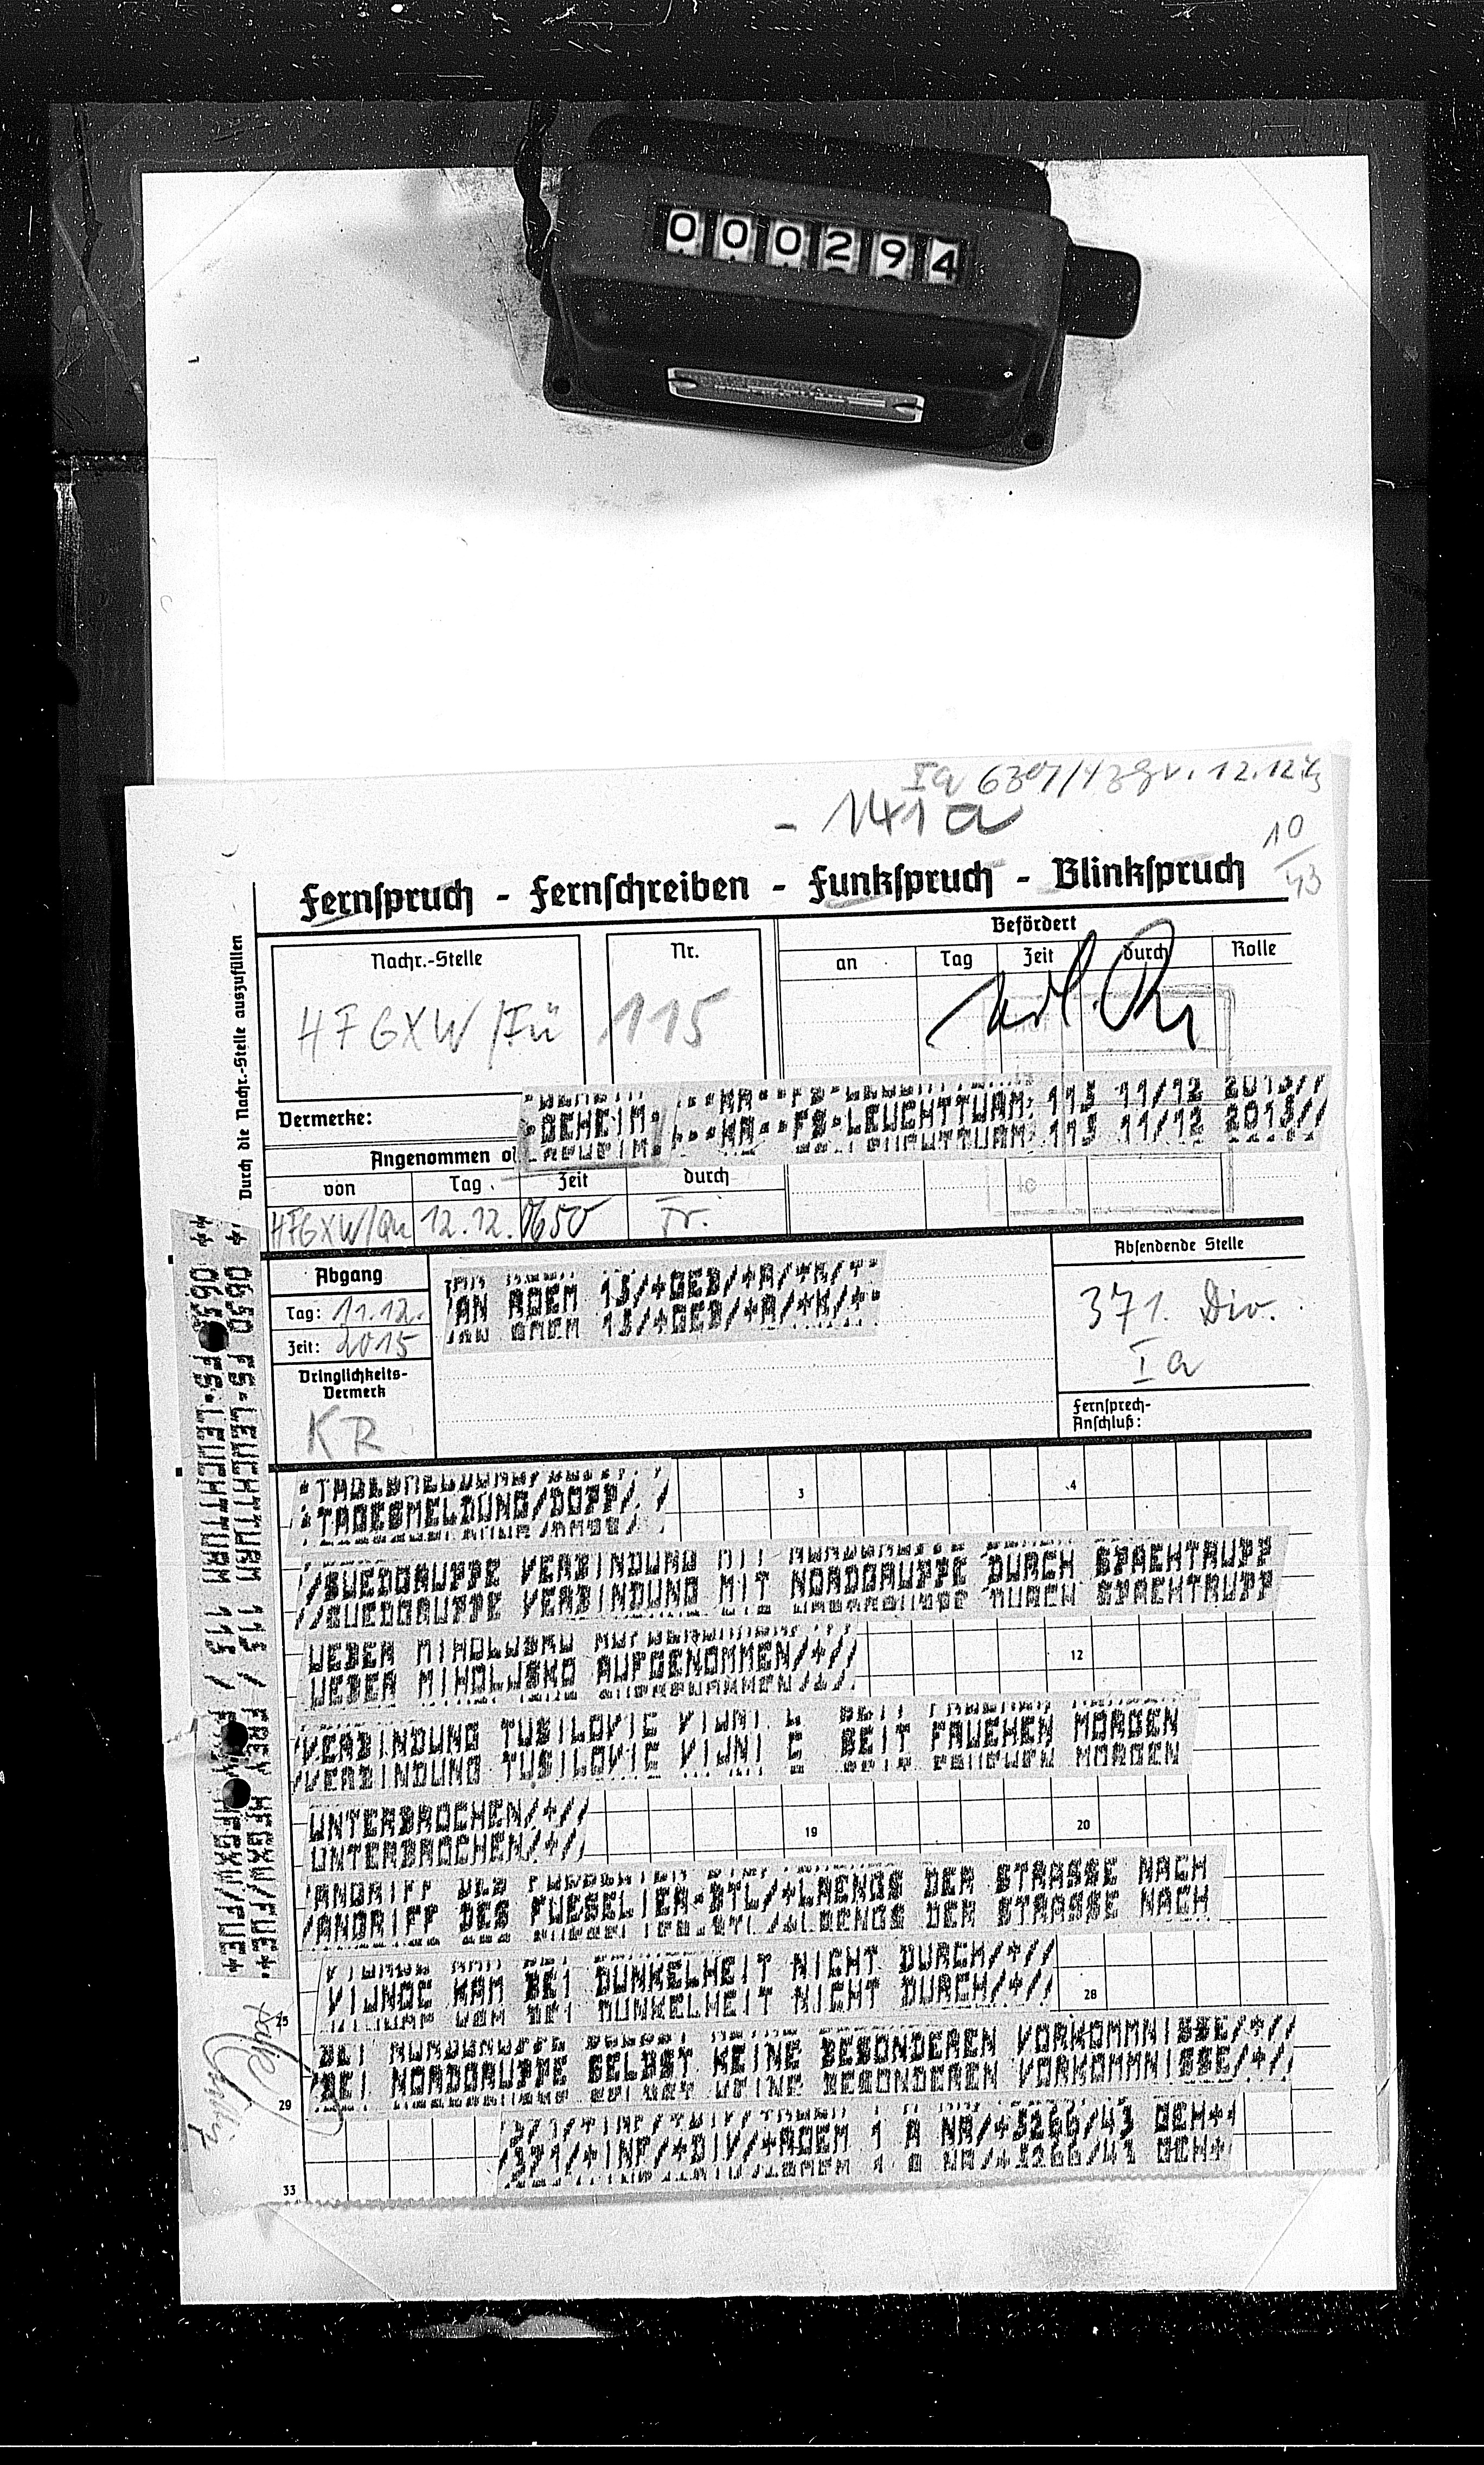 000294
Ia
12.12.43
- 141a
10
43
Fernspruch - Fernschreiben - Funkspruch - Blinkspruch
Durch die Nachr.-Stelle auszufüllen
Nachr.-Stelle
Nr.
HFGXW/Fü
115
Befördert
an
Tag
Zeit
durch
Rolle
Vermerke:
GEHEIM
KR FS LEUCHTTURM 115 11/12 2015//
Angenommen
von
Tag
Zeit
durch
HFGXW/Qu
12.12.
0650
Tr.
Abgang
Tag: 11.12.
Zeit: 2015
Dringlichkeits-
Vermerk
KR
AN ROEM 15/+GEB/+A/+K/+
Absendende Stelle
371. Div.
Ia
Fernsprech-
Anschluß:
++ 0650 FS-LEUCHTTURM 115 / FREY HFGXW/FUE+
TAGESMELDUNG/DOPP/
//SUEDGRUPPE VERBINDUNG MIT NORDGRUPPE DURCH SPAEHTRUPP
UEBER MIHOLJSKO AUFGENOMMEN/+//
/VERBINDUNG TUSILOVIC VIJNI C SEIT FRUEHEN MORGEN
UNTERBROCHEN/+//
/ANGRIFF DES FUESELIER-BTL/+LAENGS DER STRASSE NACH
VIJNGC KAM BEI DUNKELHEIT NICHT DURCH/+//
/BEI NORDGRUPPE SELBST KEINE BESONDEREN VORKOMMNISSE/+//
/371/+INF/+DIV/+ROEM 1 A NR/+3266/43 GEH++
3
4
12
19
20
25
28
29
33